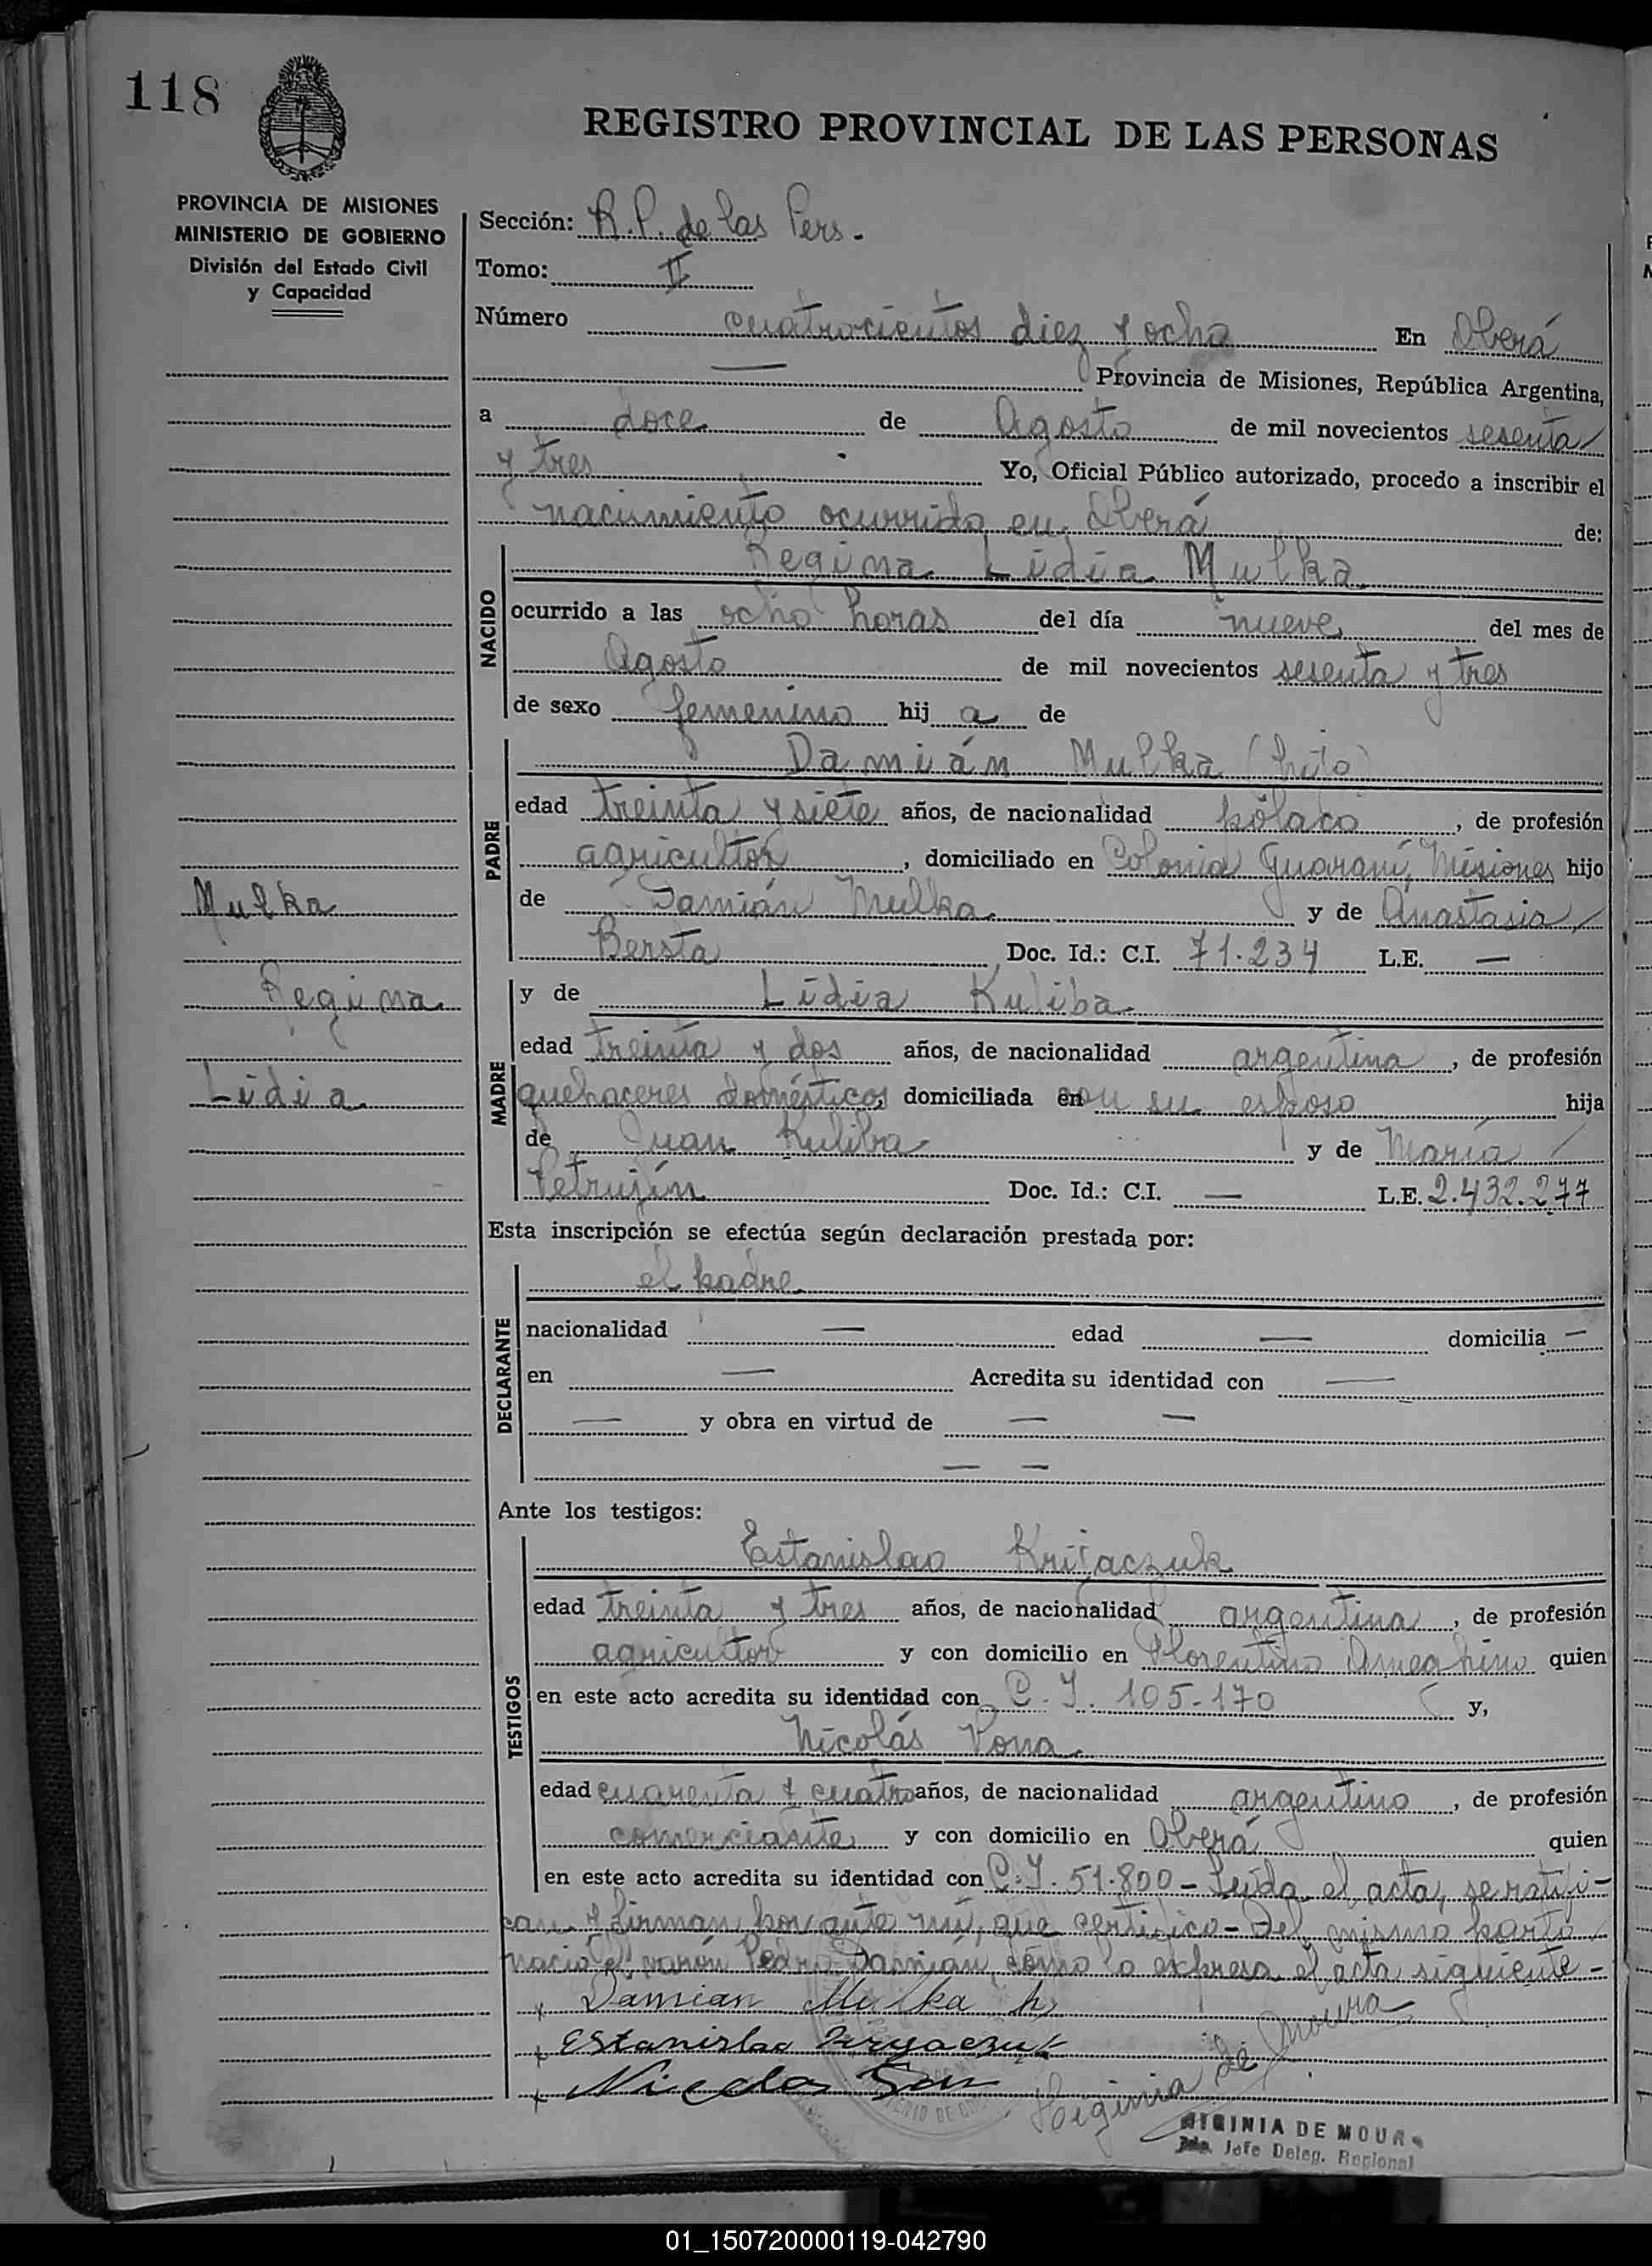 118
REGISTRO PROVINCIAL DE LAS PERSONAS
PROVINCIA DE MISIONES
MINISTERIO DE GOBIERNO
División del Estado Civil
y Capacidad
Sección: R.P. de las Pers.
Tomo: II
Número cuatrocientos diez y ocho En Oberá
— Provincia de Misiones, República Argentina,
a doce de Agosto de mil novecientos sesenta
y tres Yo, Oficial Público autorizado, procedo a inscribir el
nacimiento ocurrido en Oberá de:
NACIDO
Regina Lidia Mulka
ocurrido a las ocho horas del día nueve del mes de
Agosto de mil novecientos sesenta y tres
de sexo femenino hij a de
PADRE
Damián Mulka (hijo)
edad treinta y siete años, de nacionalidad polaco, de profesión
agricultor, domiciliado en Colonia Guaraní, Misiones hijo
de Damián Mulka y de Anastasia
Bersta Doc. Id.: C.I. 71.234 L.E. —
Mulka
Regina
Lidia
MADRE
y de Lidia Kuliba
edad treinta y dos años, de nacionalidad argentina, de profesión
quehaceres domésticos domiciliada con su esposo hija
de Juan Kuliba y de María
Petrujín Doc. Id.: C.I. — L.E. 2.432.277
Esta inscripción se efectúa según declaración prestada por:
DECLARANTE
el padre
nacionalidad — edad — domicilia —
en — Acredita su identidad con —
— y obra en virtud de — —
— —
Ante los testigos:
TESTIGOS
Estanislao Krijaczuk
edad treinta y tres años, de nacionalidad argentina, de profesión
agricultor y con domicilio en Florentino Ameghino quien
en este acto acredita su identidad con C.I. 105.170 y,
Nicolás Pona
edad cuarenta y cuatro años, de nacionalidad argentino, de profesión
comerciante y con domicilio en Oberá quien
en este acto acredita su identidad con C.I. 51.800 - Leída el acta, se ratifi-
can y firman por ante mí, que certifico - Del mismo parto
nació el varón Pedro Damián, como lo expresa el acta siguiente -
x Damian Mulka h
x Estanislao
x Nicolas
Higinia de Moura
HIGINIA DE MOURA
Jefe Deleg. Regional
01_150720000119-042790